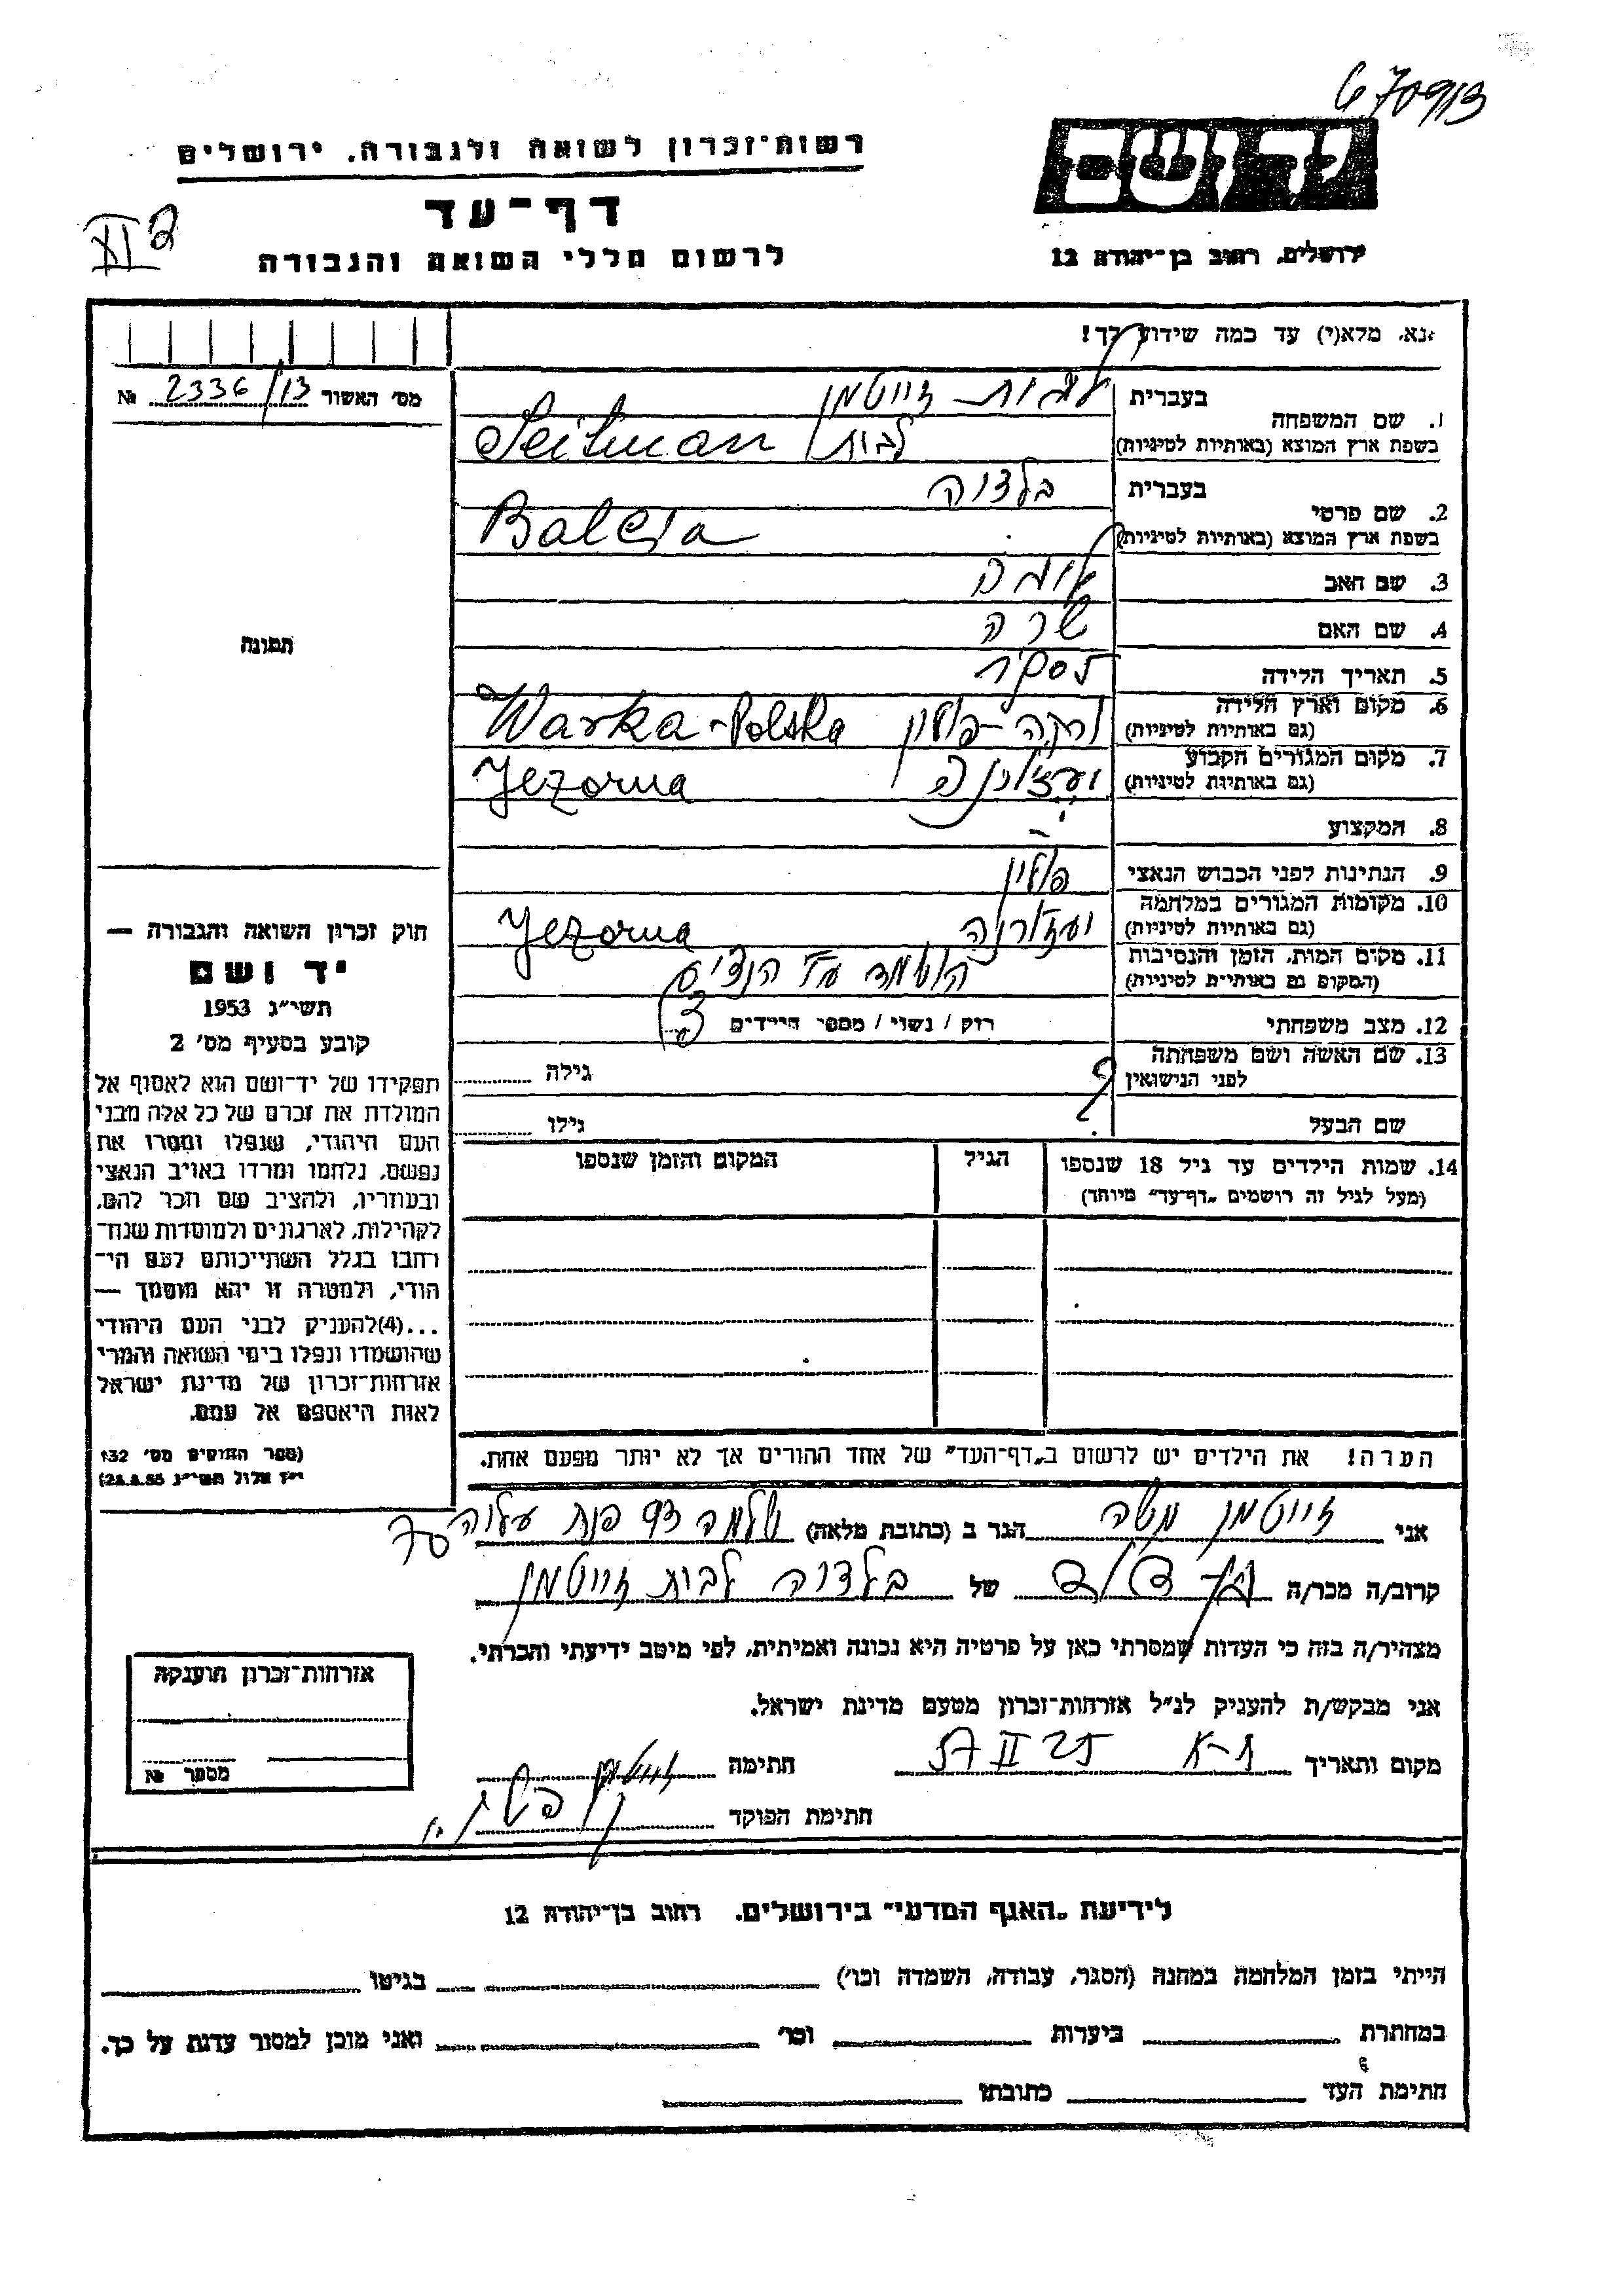 670913
רשות־זכרון לשואה ולגבורה. ירושלים
דף־עד
לרשום חללי השואה והגבורה
יד ושם
ירושלים, רחוב בן־יהודה 12
נא, מלא(י) עד כמה שידוע לך!
מס' האשור 2336/13 №
1. שם המשפחה
בעברית לבית זייטמן
בשפת ארץ המוצא (באותיות לטיניות) לבית Seitman
2. שם פרטי
בעברית בלציה
בשפת ארץ המוצא (באותיות לטיניות) Balcia
3. שם האב
4. שם האם שרה
5. תאריך הלידה
6. מקום וארץ הלידה
(גם באותיות לטיניות) ורקה - פולין Warka - Polska
7. מקום המגורים הקבוע
(גם באותיות לטיניות) יעזורנה Jezorna
8. המקצוע -
9. הנתינות לפני הכבוש הנאצי פולין
10. מקומות המגורים במלחמה
(גם באותיות לטיניות) יעזורנה Jezorna
11. מקום המות, הזמן והנסיבות
(המקום גם באותיות לטיניות) הושמד ע"י הנצים
12. מצב משפחתי רוק / נשוי / מספר הילדים
13. שם האשה ושם משפחתה
לפני הנישואין ? גילה
שם הבעל גילו
14. שמות הילדים עד גיל 18 שנספו
(מעל לגיל זה רושמים "דף־עד" מיוחד)
הגיל
המקום והזמן שנספו
הערה! את הילדים יש לרשום ב"דף־העד" של אחד ההורים אך לא יותר מפעם אחת.
תמונה
חוק זכרון השואה והגבורה —
יד ושם
תשי"ג 1953
קובע בסעיף מס' 2
תפקידו של יד־ושם הוא לאסוף אל
המולדת את זכרם של כל אלה מבני
העם היהודי, שנפלו ומסרו את
נפשם, נלחמו ומרדו באויב הנאצי
ובעוזריו, ולהציב שם וזכר להם,
לקהילות, לארגונים ולמוסדות שנח־
רבו בגלל השתייכותם לעם הי־
הודי, ולמטרה זו יהא מוסמך —
...(4)להעניק לבני העם היהודי
שהושמדו ונפלו בימי השואה והמרי
אזרחות־זכרון של מדינת ישראל
לאות היאספם אל עמם.
(ספר החוקים מס' 132
י"ז אלול תשי"ג 28.8.53)
אני זייטמן משה הגר ב (כתובת מלאה) שלמה 93 פנת עליה 70
קרוב/ה מכר/ה של בלציה לבית זייטמן
מצהיר/ה בזה כי העדות שמסרתי כאן על פרטיה היא נכונה ואמיתית, לפי מיטב ידיעתי והכרתי.
אני מבקש/ת להעניק לנ"ל אזרחות־זכרון מטעם מדינת ישראל.
מקום ותאריך ת-א 25 II 57 חתימה זייטמן
חתימת הפוקד
אזרחות־זכרון הוענקה
מספר №
לידיעת "האגף המדעי" בירושלים. רחוב בן־יהודה 12
הייתי בזמן המלחמה במחנה (הסגר, עבודה, השמדה וכו') בגיטו
במחתרת ביערות וכו' ואני מוכן למסור עדות על כך.
חתימת העד כתובתו